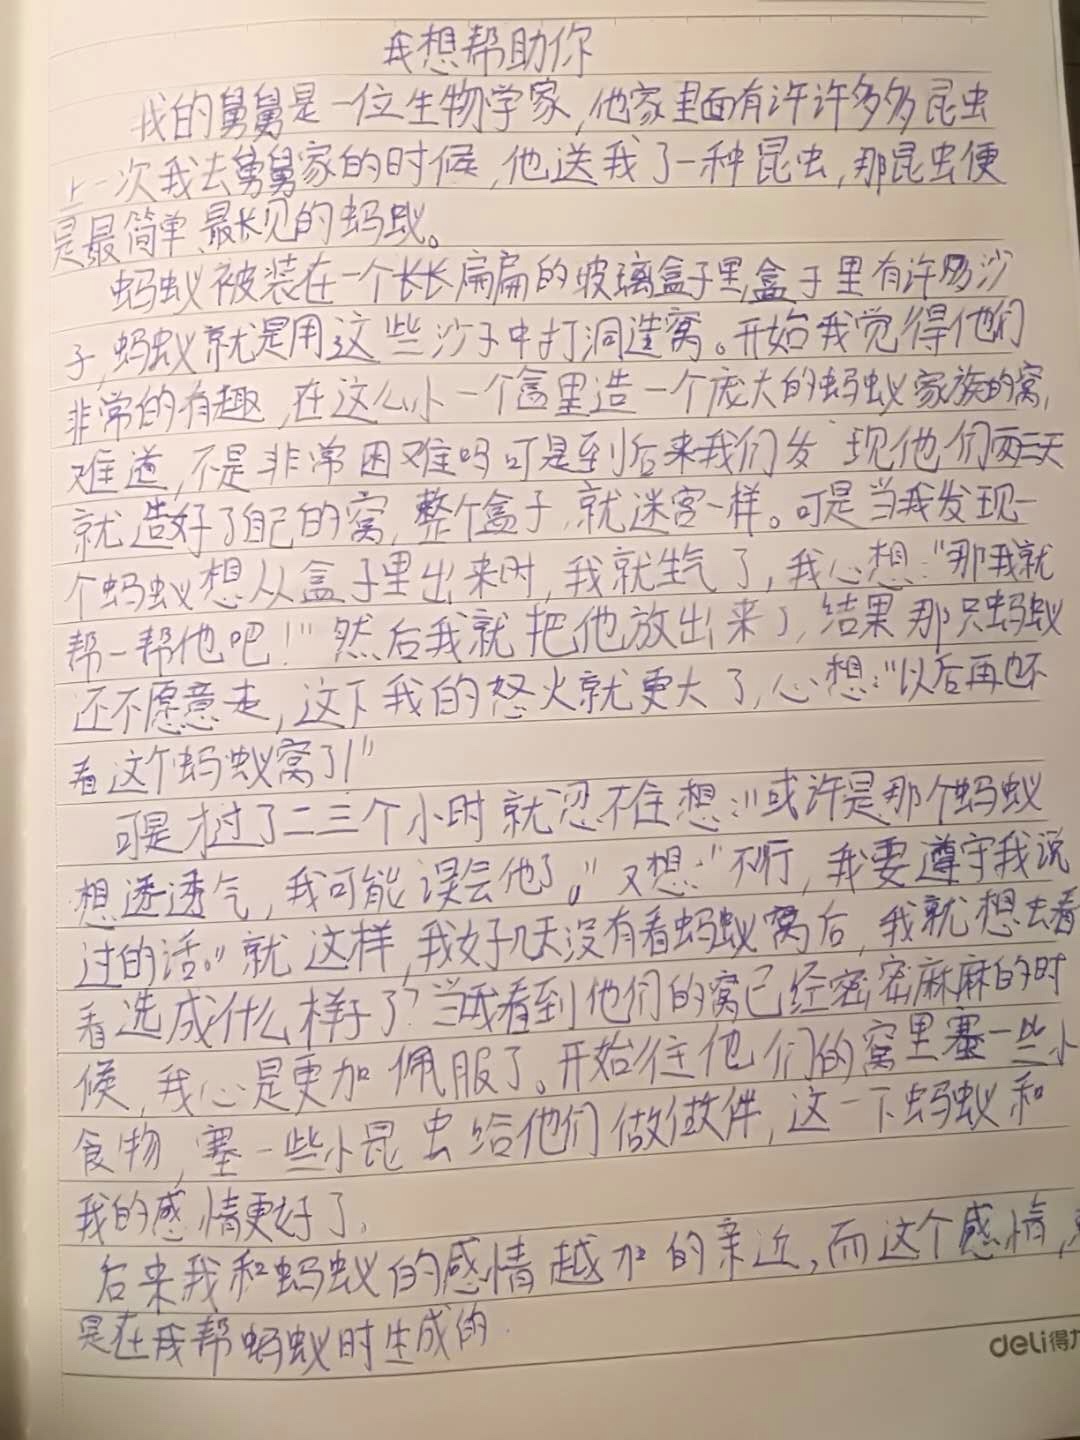 我想帮助你
我的舅舅是一位生物学家,他家里面有许许多多昆虫
上一次我去舅舅家的时候,他送我了一种昆虫,那昆虫便
是最简单、最长见的蚂蚁。
蚂蚁被装在一个长长扁扁的玻璃盒子里,盒子里有许多沙
子,蚂蚁就是用这些沙子中打洞造窝。开始我觉得他们
非常的有趣,在这么小一个盒里造一个庞大的蚂蚁家族的窝,
难道,不是非常困难吗可是到后来我们发现他们两三天
就造好了自己的窝,整个盒子,就迷宫一样。可是当我发现一
个蚂蚁想从盒子里出来时,我就生气了,我心想:“那我就
帮一帮他吧!”然后我就把他放出来了,结果那只蚂蚁
还不愿意走,这下我的怒火就更大了,心想:“以后再也不
看这个蚂蚁窝了!”
可是才过了二三个小时就忍不住想:“或许是那个蚂蚁
想透透气,我可能误会他了。”又想:“不行,我要遵守我说
过的话。”就这样,我好几天没有看蚂蚁窝后,我就想去看
看造成什么样子了?当我看到他们的窝已经密密麻麻的时
候,我心是更加佩服了。开始往他们的窝里塞一些小
食物,塞一些小昆虫给他们做伙伴,这一下蚂蚁和
我的感情更好了。
后来我和蚂蚁的感情越加的亲近,而这个感情,
是在我帮蚂蚁时生成的.
deli得力